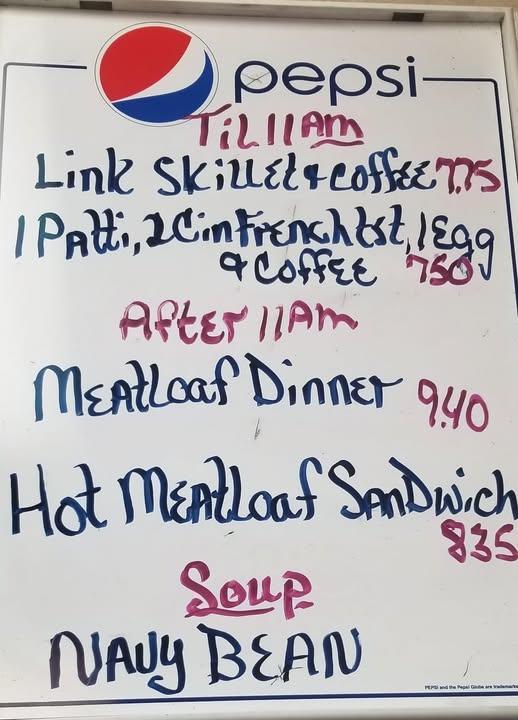 pepsi
Til 11 Am
Link Skillet & Coffee 7.75
1 Patti, 2 Cin French tst, 1 Egg
& Coffee 750
After 11 Am
Meatloaf Dinner 9.40
Hot Meatloaf Sandwich
835
Soup
Navy Bean
PEPSI and the Pepsi Globe are trademarks